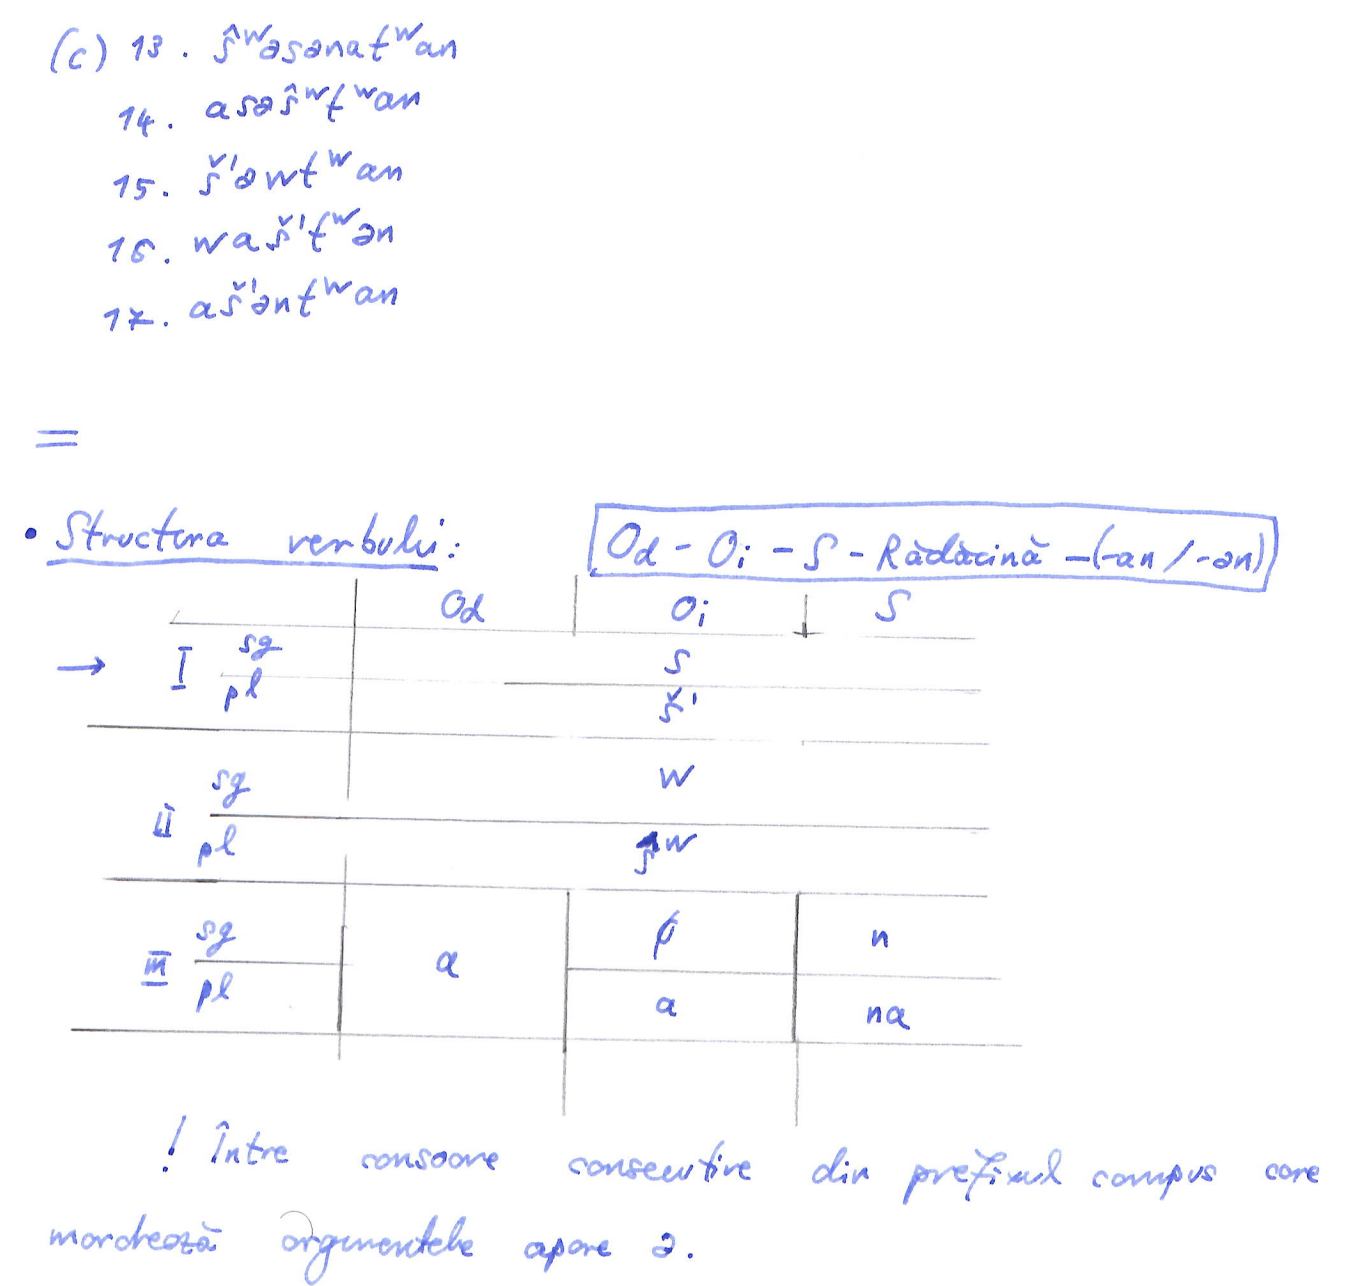 (c) 13. ŝʷəsanatʷan
14. asəŝʷtʷan
15. š'əwtʷan
16. waš'tʷən
17. aš'əntʷan
=
• Structura verbului: Od - Oi - S - Rădăcină -(-an / -ən)
Od Oi S
→ I sg s
pl š'
II sg w
pl ŝʷ
III sg a ∅ n
pl a na
! Între consoane consecutive din prefixul compus care
marchează argumentele apare ə.